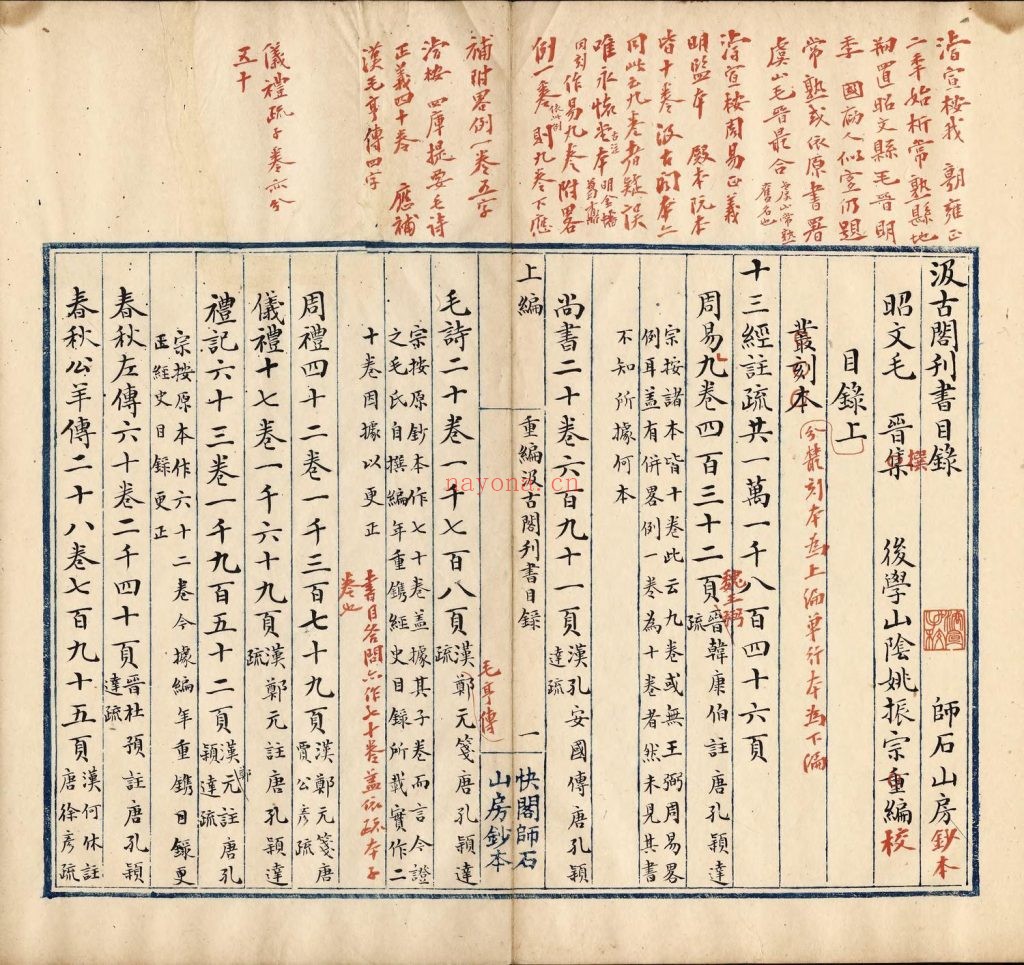 濬宣桉我 朝雍正
二年始析常熟縣地
剏置昭文縣毛晉明
季 國初人似宜仍題
常熟或依原書署
虞山毛晉最合虞山常熟
舊名也
濬宣桉周易正義
明監本 殿本阮本
皆十卷汲古閣本亦
同此云九卷者疑誤
唯永懷堂本
明金蟠
葛鼒
同刻作易九卷附畧
例一卷
則九卷下應
補附畧例一卷五字
濬桉四庫提要毛詩
正義四十卷 應補
漢毛亨傳四字
儀禮疏子卷亦分
五十
汲古閣刊書目錄 師石山房鈔本
昭文毛 晉集撰 後學山陰姚振宗重編校
目錄上
叢刻本 分叢刻本為上編單行本為下編
十三經註疏共一萬一千八百四十六頁
周易九卷四百三十二頁魏王弼晉韓康伯註唐孔穎達疏
宗按諸本皆十卷此云九卷或無王弼周易畧
例耳盖有併畧例一卷為十卷者然未見其書
不知所據何本
尚書二十卷六百九十一頁漢孔安國傳唐孔穎達疏
上編
重編汲古閣刊書目錄
一
快閣師石
山房鈔本
毛詩二十卷一千七百八頁毛亨傳漢鄭元箋唐孔穎達疏
宗按原鈔本作七十卷盖據其子卷而言今證
之毛氏自撰編年重鐫經史目錄所載實作二
十卷因據以更正
書目答問亦作七十卷盖依疏本子
卷也
周禮四十二卷一千三百七十九頁漢鄭元箋唐賈公彥疏
儀禮十七卷一千六十九頁漢鄭元註唐孔穎達疏
禮記六十三卷一千九百五十二頁漢鄭元註唐孔穎達疏
宗按原本作六十二卷今據編年重鐫目錄更
正經史目錄更正
春秋左傳六十卷二千四十頁晉杜預註唐孔穎達疏
春秋公羊傳二十八卷七百九十五頁漢何休註唐徐彥疏
nayona.cn